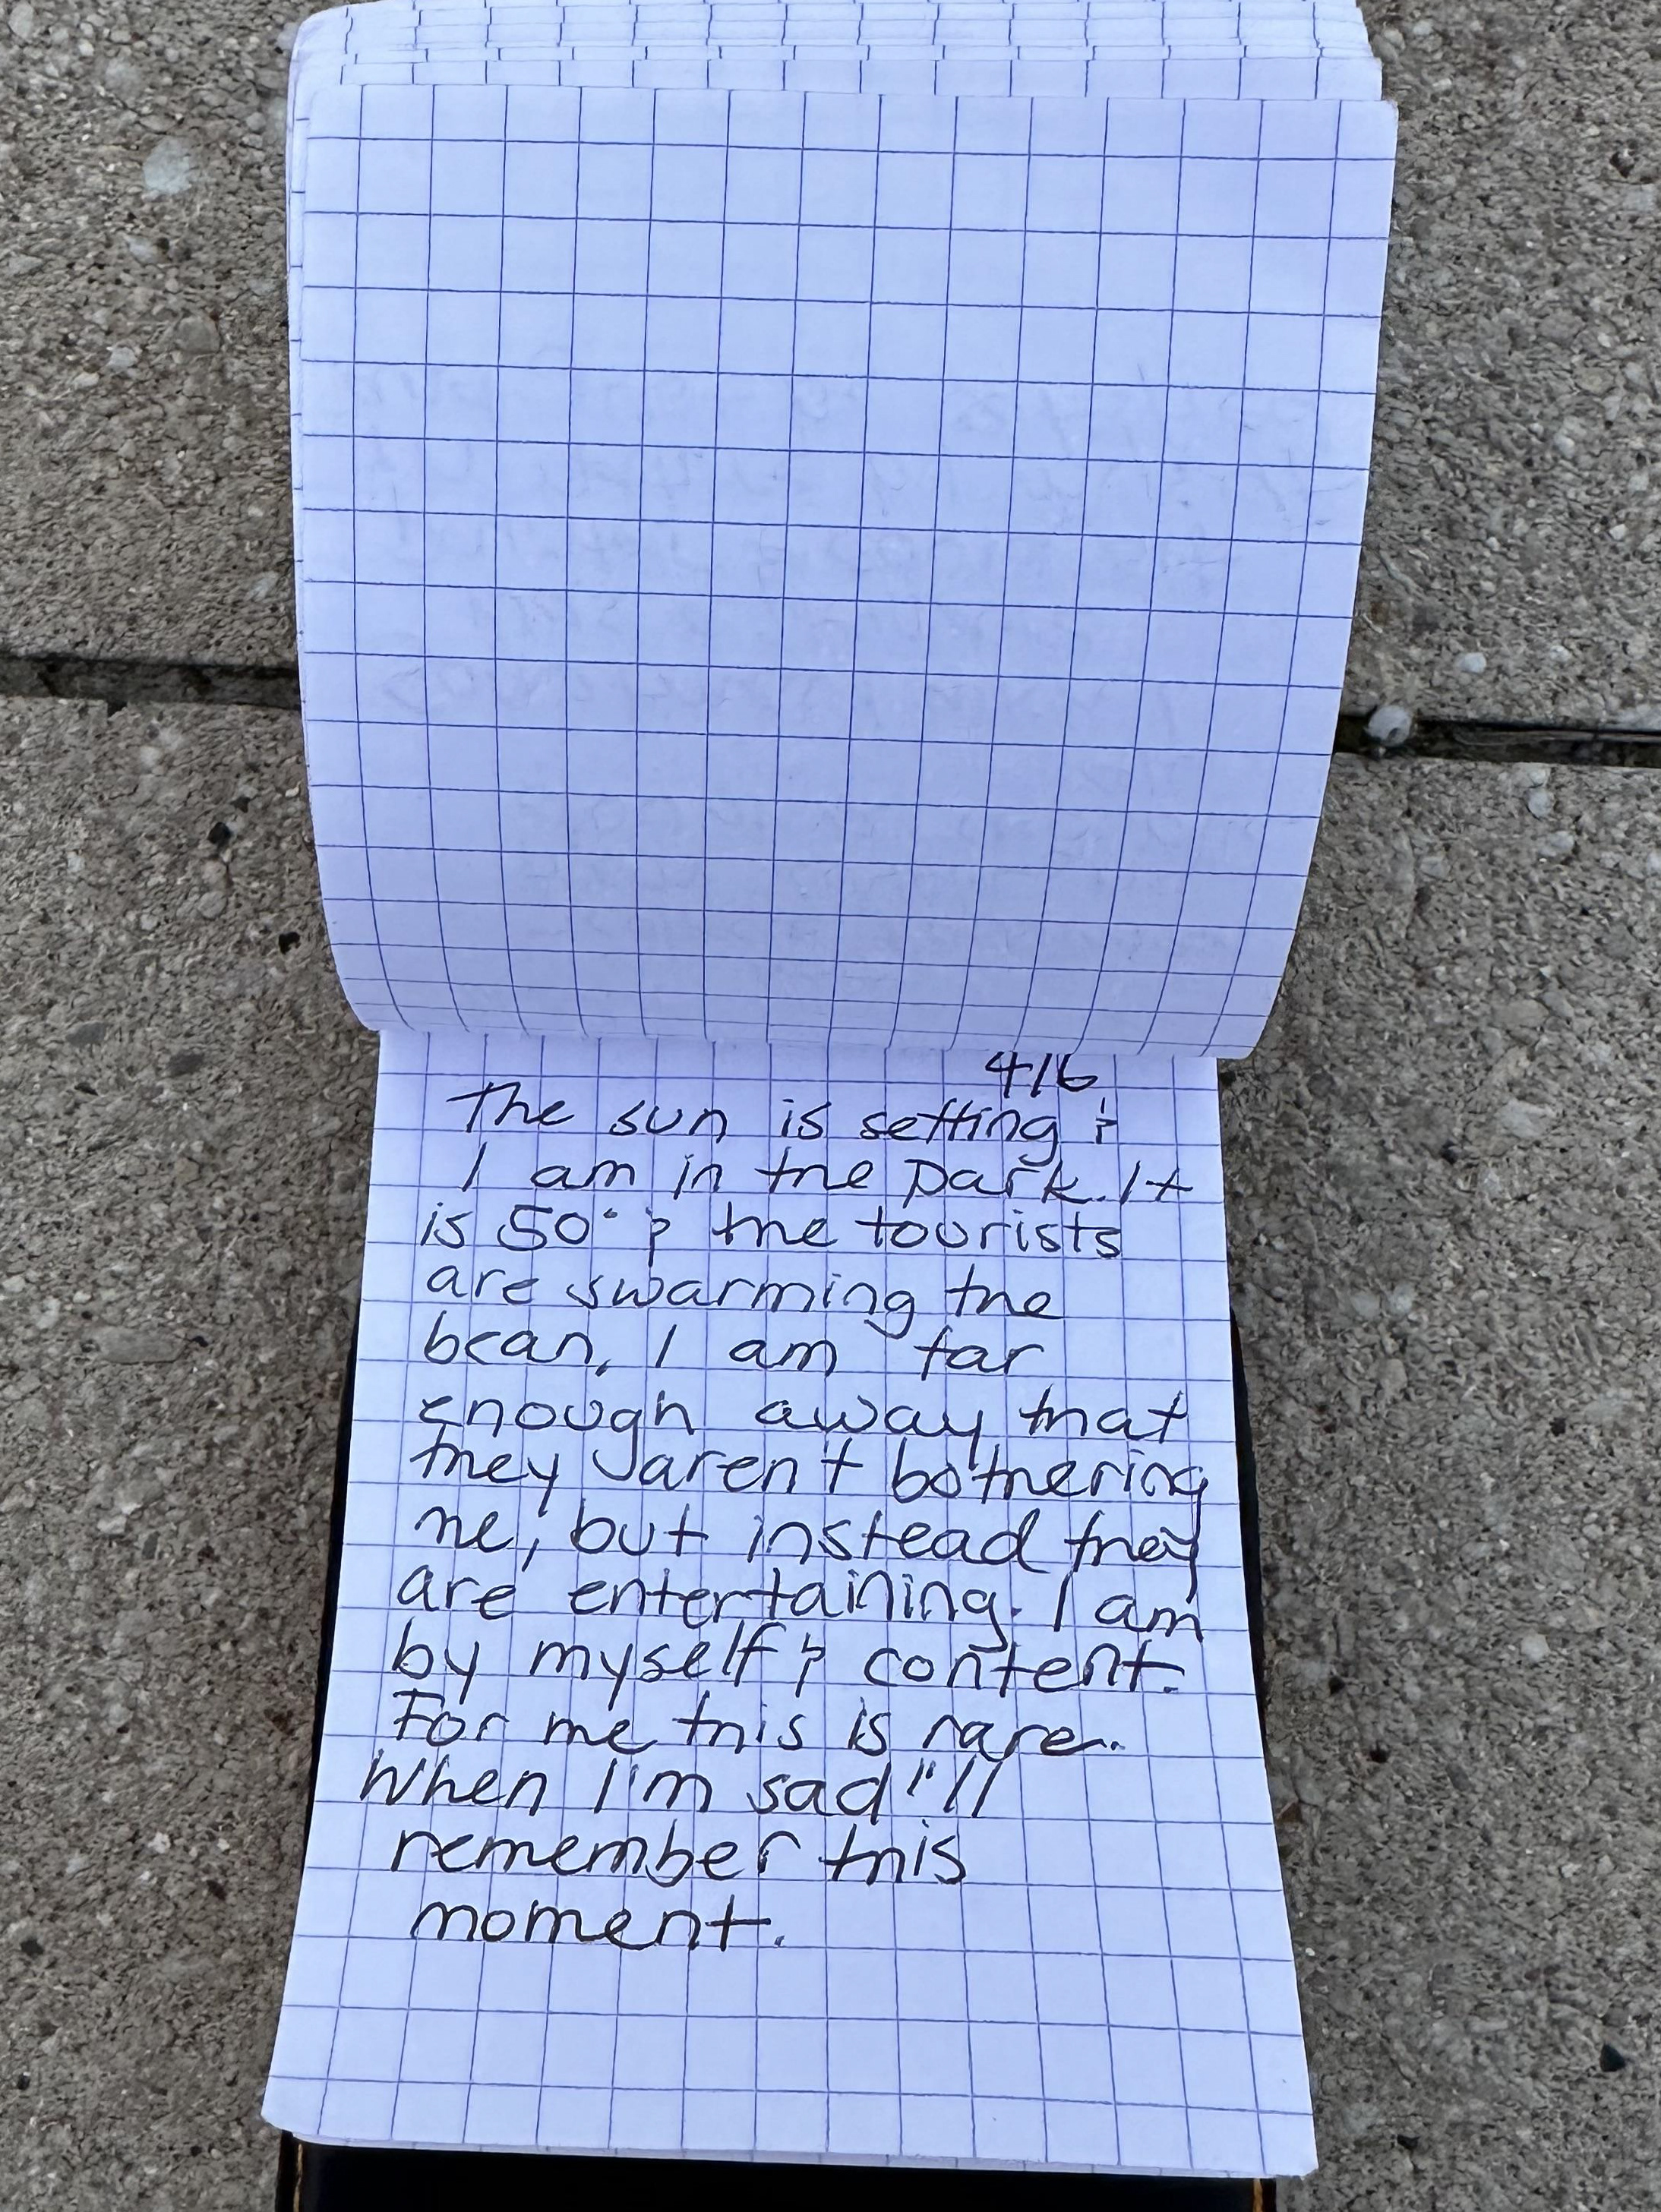 4/6
The sun is setting &
I am in the park. It
is 50° & the tourists
are swarming the
bean. I am far
enough away that
they aren't bothering
me, but instead they
are entertaining. I am
by myself & content.
For me this is rare..
When I'm sad I'll
remember this
moment.